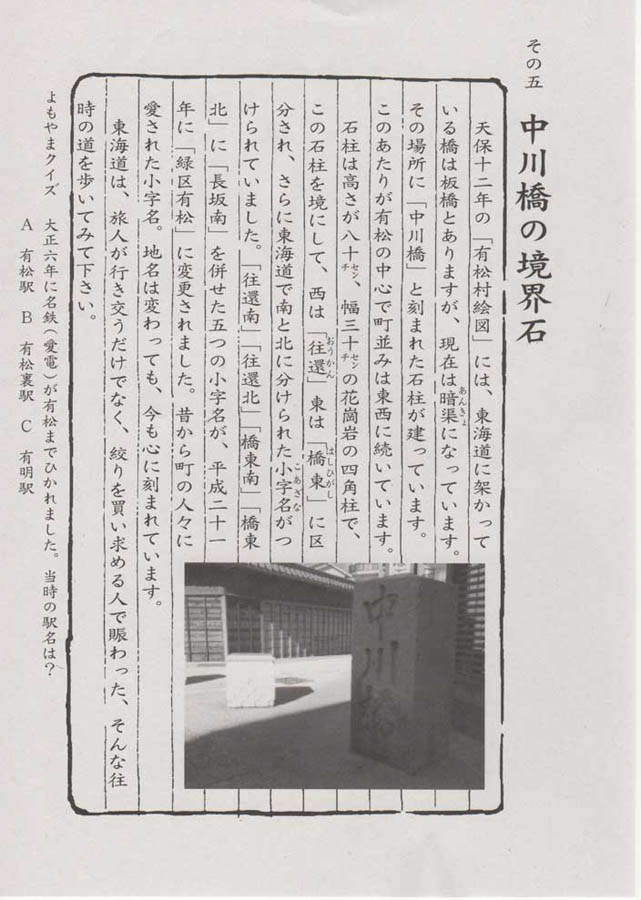 その五　中川橋の境界石
天保十二年の「有松村絵図」には、東海道に架かって
いる橋は板橋とありますが、現在は暗渠になっています。
あんきょ
その場所に「中川橋」と刻まれた石柱が建っています。
このあたりが有松の中心で町並みは東西に続いています。
石柱は高さが八十センチ、幅三十センチの花崗岩の四角柱で、
この石柱を境にして、西は「往還」東は「橋東」に区
おうかん
はしひがし
分され、さらに東海道で南と北に分けられた小字名がつ
こあざな
けられていました。「往還南」「往還北」「橋東南」「橋東
北」に「長坂南」を併せた五つの小字名が、平成二十一
年に「緑区有松」に変更されました。昔から町の人々に
愛された小字名。地名は変わっても、今も心に刻まれています。
東海道は、旅人が行き交うだけでなく、絞りを買い求める人で賑わった、そんな往
時の道を歩いてみて下さい。
中川橋
よもやまクイズ　大正六年に名鉄（愛電）が有松までひかれました。当時の駅名は？
A　有松駅　B　有松裏駅　C　有明駅